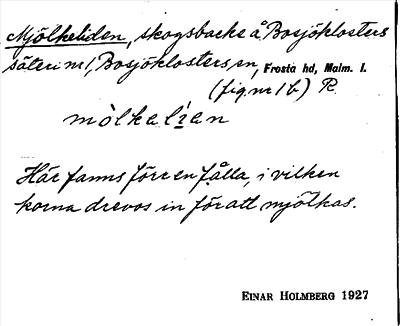 Mjölkeliden, skogsbacke å Bosjöklosters
säteri nr 1, Bosjöklosters sn, Frosta hd, Malm. l.
(fig nr 1 b) R
mòlkelìen
Här fanns förr en fålla, i vilken
korna drevos in för att mjölkas.
EINAR HOLMBERG 1927